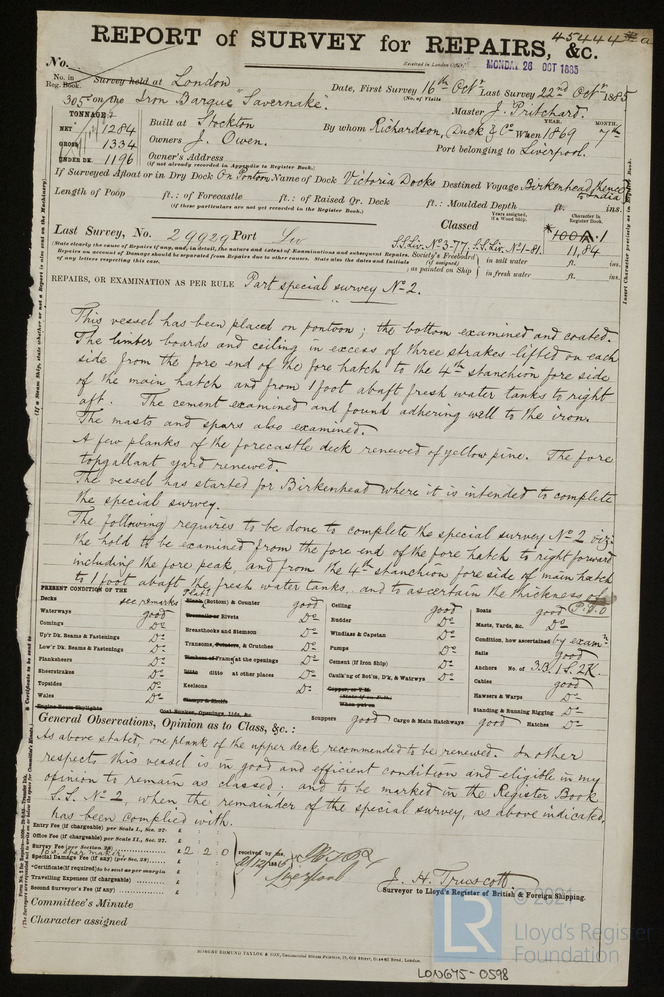 45444
REPORT of SURVEY for REPAIRS, &c.
Received in London Office,
MONDAY 26 OCT 1885
No.
No. in Reg. Book.
Survey held at London
Date, First Survey 16th Octr Last Survey 22nd Octr 1885
(No. of Visits
305 on the Iron Barque "Savernake"
Master J. Pritchard.
TONNAGE:
NET 1284
GROSS 1334
UNDER DK. 1196
Built at Stockton
By whom Richardson, Duck & Co When 1869 7th
YEAR. MONTH.
Owners J. Owen.
Port belonging to Liverpool.
Owner's Address
(If not already recorded in Appendix to Register Book.)
If Surveyed Afloat or in Dry Dock On Pontoon Name of Dock Victoria Docks Destined Voyage Birkenhead thence to India
Length of Poop ft.: of Forecastle ft.: of Raised Qr. Deck ft.: Moulded Depth ft. ins.
(If these particulars are not yet recorded in the Register Book.)
Last Survey, No. 29929 Port Liv
Classed
Years assigned, if a Wood Ship.
Character in Register Book.
100A.1
11,84
S.S. Liv. No 3-77. S.S. Liv. No 1-81.
(State clearly the cause of Repairs if any, and, in detail, the nature and extent of Examinations and subsequent Repairs.
Repairs on account of Damage should be separated from Repairs due to other causes. State also the dates and Initials of any letters respecting this case.)
Society's Freeboard (if assigned) as painted on Ship
in salt water ft. ins.
in fresh water ft. ins.
REPAIRS, OR EXAMINATION AS PER RULE Part special survey No 2.
This vessel has been placed on pontoon; the bottom examined and coated.
The limber boards and ceiling in excess of three strakes lifted on each
side from the fore end of the fore hatch to the 4th stanchion fore side
of the main hatch and from 1 foot abaft fresh water tanks to right
aft. The cement examined and found adhering well to the iron.
The masts and spars also examined.
A few planks of the forecastle deck renewed of yellow pine. The fore
topgallant yard renewed.
The vessel has started for Birkenhead where it is intended to complete
the special survey.
The following requires to be done to complete the special survey No 2 viz:
the hold to be examined from the fore end of the fore hatch to right forward
including the fore peak, and from the 4th stanchion fore side of main hatch
to 1 foot abaft the fresh water tanks, and to ascertain the thickness of
P.T.O
PRESENT CONDITION OF THE
Decks see remarks
Waterways good
Comings Do
Up'r Dk. Beams & Fastenings Do
Low'r Dk. Beams & Fastenings Do
Planksheers Do
Sheerstrakes Do
Topsides Do
Wales Do
Engine Room Skylights
Plank (Bottom) & Counter good
Treenails or Rivets Do
Breasthooks and Stemson Do
Transoms, Pointers, & Crutches Do
Timbers or Frames at the openings Do
Ditto ditto at other places Do
Keelsons Do
Clamps & Shelfs
Coal Bunkers, Openings, lids, &c.
Ceiling good
Rudder Do
Windlass & Capstan Do
Pumps Do
Cement (if Iron Ship) Do
Caulk'ng of Bot'm, D'k, & Wat'rwys Do
Copper, or Y.M.
When put on
Scuppers good Cargo & Main Hatchways good Hatches Do
Boats good
Masts, Yards, &c. Do
Condition, how ascertained by examn
Sails good
Anchors No. of 3B. 1S. 2K.
Cables good
Hawsers & Warps Do
Standing & Running Rigging Do
General Observations, Opinion as to Class, &c.:
As above stated, one plank of the upper deck recommended to be renewed. In other
respects this vessel is in good and efficient condition and eligible in my
opinion to remain as classed; and to be marked in the Register Book
S.S. No 2, when the remainder of the special survey, as above indicated,
has been complied with.
Entry Fee (if chargeable) per Scale I., Sec. 27. £
Office Fee (if chargeable) per Scale II., Sec. 27. £
Survey Fee (per Section 28) £ 2 2 0
Special Damage Fee (if any) (per Sec. 28) £
*Certificate (if required) to be sent as per margin £
Travelling Expenses (if chargeable) £
Second Surveyor's Fee (if any) £
received by me,
Liverpool
J. H. Truscott
Surveyor to Lloyd's Register of British & Foreign Shipping.
Committee's Minute
Character assigned
© 2021
LR
Lloyd's Register
Foundation
LON675-0598